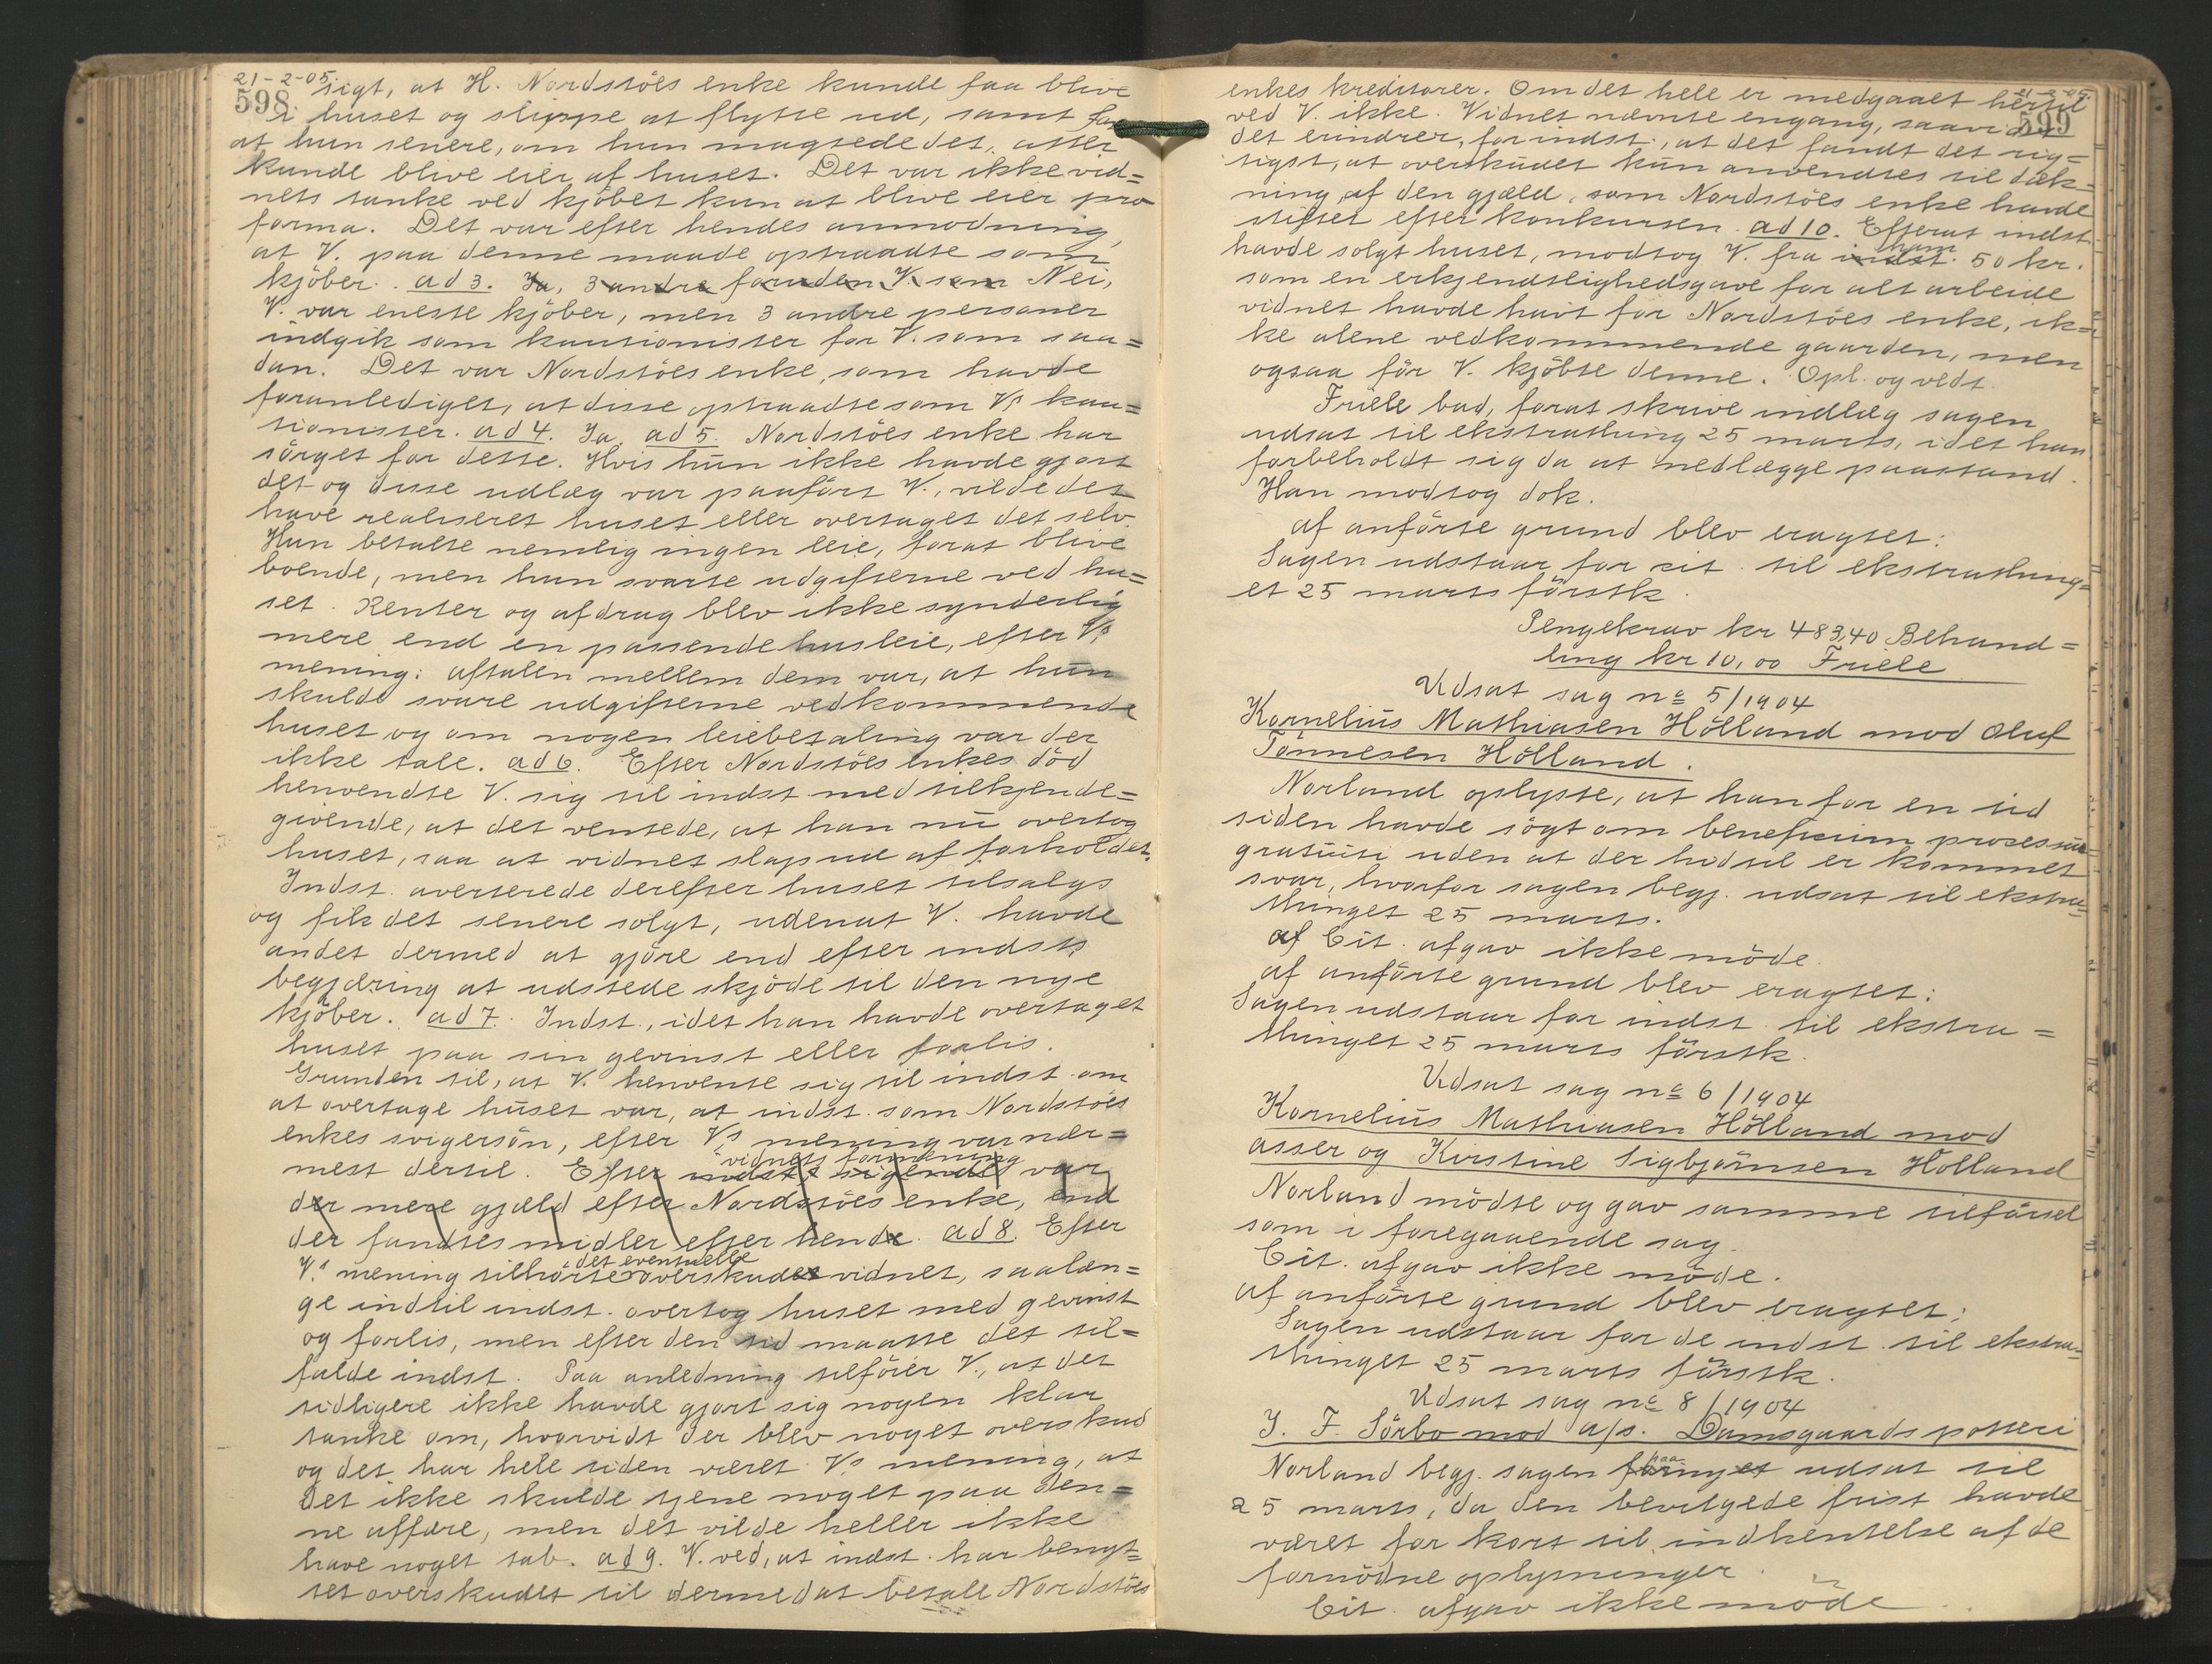 21-2-05.
598.
sigt, at H. Nordstöes enke kunde faa blive
i huset og slippe at flytte ud, samt for
at hun senere, om hun magtede det, atter
kunde blive eier af huset. Det var ikke vid=
nets tanke ved kjöbet kun at blive eier pro
forma. Det var efter hendes anmodning,
at V. paa denne maade optraadte som
kjöber. ad 3. Ja, 3 andre foruden V. som Nei,
V. var eneste kjöber, men 3 andre personer
indgik som kautionister for V. som saa=
dan. Det var Nordstöes enke, som havde
foranlediget, at disse optraadte som Vs kau=
tionister. ad 4. Ja. ad 5. Nordstöes enke har
sörget for dette. Hvis hun ikke havde gjort
det og disse udlæg var paafört V., vilde det
have realiseret huset eller overtaget det selv.
Hun betalte nemlig ingen leie, forat blive
boende, men hun svarte udgifterne ved hu=
set. Renter og afdrag blev ikke synderlig
mere end en passende husleie, efter Vs
mening: aftalen mellem dem var, at hun
skulde svare udgifterne vedkommende
huset og om nogen leiebetaling var der
ikke tale. ad 6. Efter Nordstöes enkes död
henvendte V. sig til indst. med tilkjende=
givende, at det ventede, at han nu overtog
huset, saa at vidnet slap ud af forholdet.
Indst. averterede derefter huset tilsalgs
og fik det senere solgt, udenat V. havde
andet dermed at gjöre end efter indsts
begjæring at udstede skjöde til den nye
kjöber. ad 7. Indst., idet han havde overtaget
huset paa sin gevinst eller forlis.
Grunden til, at V. henvente sig til indst. om
at overtage huset var, at indst. som Nordstöes
enkes svigersön, efter Vs mening var nær=
vidnets formening
mest dertil. Efter indsts sigende var
der mere gjæld efter Nordstöes enke, end
der fandtes midler efter hende. ad 8. Efter
det eventuelle
Vs mening tilhörte overskudet vidnet, saalæn=
ge indtil indst. overtog huset med gevinst
og forlis, men efter den tid maatte det til=
falde indst. Paa anledning tilföier V., at det
tidligere ikke havde gjort sig nogen klar
tanke om, hvorvidt der blev noget overskud
og det har hele tiden været Vs mening, at
det ikke skulde tjene noget paa den=
ne affære, men det vilde heller ikke
have noget tab. ad 9. V. ved, at indst. har benyt=
tet overskudet til dermed at betale Nordstöes
21-2-05.
599
enkes kreditorer. Om det hele er medgaaet hertil
ved V. ikke. Vidnet nævnte engang, saavidt
det erindrer, for indst., at det fandt det rig=
tigst, at overskudet kun anvendtes til dæk=
ning af den gjæld, som Nordstöes enke havde
stiftet efter konkursen. ad 10. Efterat indst.
ham
havde solgt huset, modtog V. fra indst. 50 kr.
som en erkjendtlighedsgave for alt arbeide
vidnet havde havt for Nordstöes enke, ik=
ke alene vedkommende gaarden, men
ogsaa för V. kjöbte denne. Opl. og vedt.
Friele bad, forat skrive indlæg sagen
udsat til ekstrathing 25 marts, idet han
forbeholdt sig da at nedlægge paastand.
Han modtog dok.
af anförte grund blev eragtet:
Sagen udstaar for cit. til ekstrathing=
et 25 marts förstk.
Pengekrav kr 483,40 Behand=
ling kr 10,00 Friele
Udsat sag no 5/1904
Kornelius Mathiasen Hölland mod Oluf
Tönnesen Hölland.
Norland oplyste, at han for en tid
siden havde sögt om beneficium processus
gratuiti uden at der hidtil er kommet
svar, hvorfor sagen begj. udsat til ekstra=
thinget 25 marts.
af Cit. afgav ikke möde.
af anförte grund blev eragtet:
Sagen udstaar for indst. til ekstra=
thinget 25 marts förstk.
Udsat sag no 6/1904
Kornelius Mathiasen Hölland mod
asser og Kirstine Sigbjörnsen Hölland
Norland mödte og gav samme tilförsel
som i foregaaende sag.
Cit. afgav ikke möde.
af anförte grund blev eragtet:
Sagen udstaar for de indst. til ekstra=
thinget 25 marts förstk.
Udsat sag no 8/1904
J. F. Sörbo mod a/s. Damsgaards potteri
paa
Norland begj. sagen udsat til
25 marts, da den bevilgede frist havde
været for kort til indhentelse af de
fornödne oplysninger.
Cit. afgav ikke möde